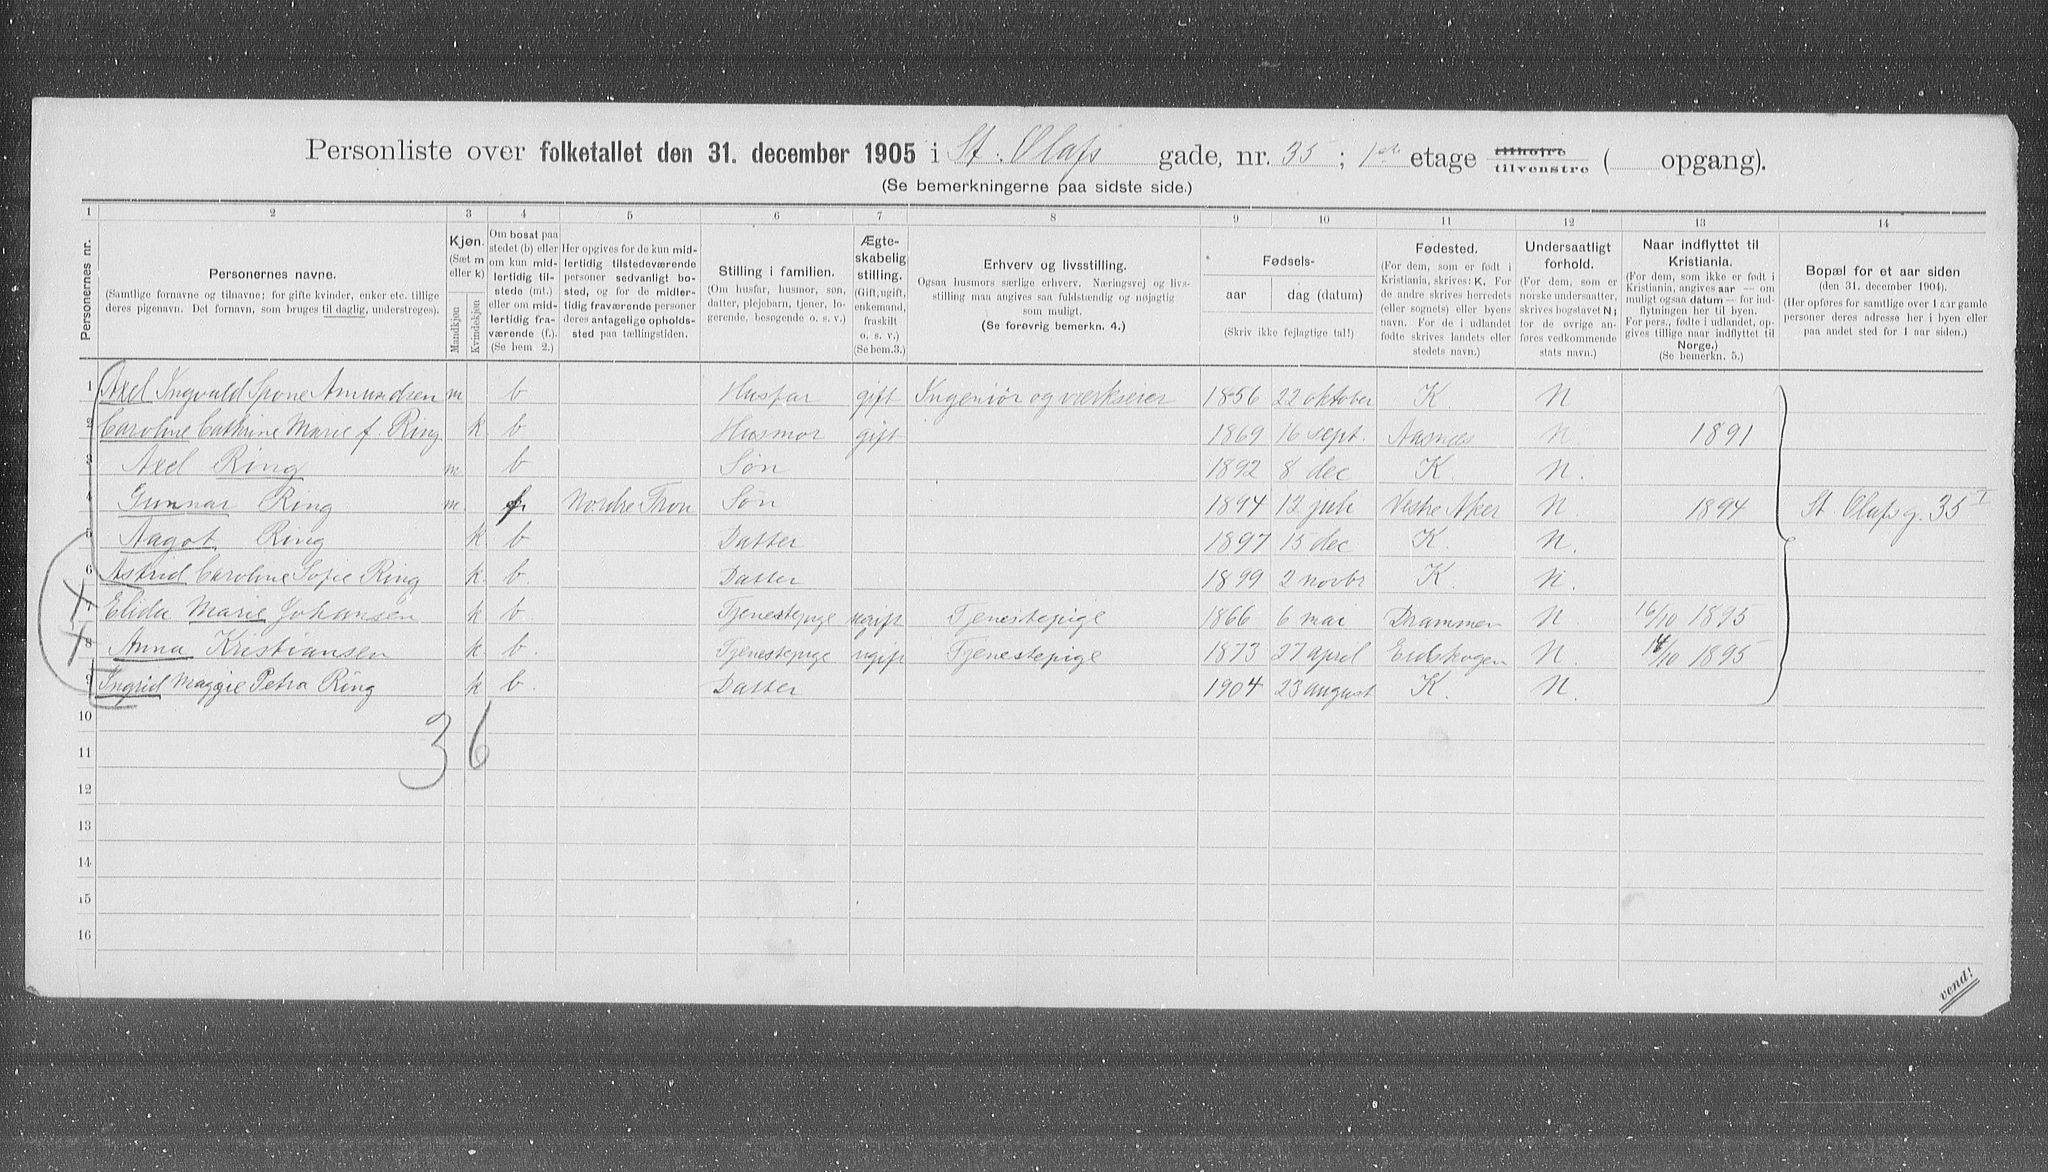 Personliste over folketallet den 31. december 1905 i St. Olafs gade, nr. 35; 1ste etage tilhøjre tilvenstre ( opgang).
(Se bemerkningerne paa sidste side.)
1 2 3 4 5 6 7 8 9 10 11 12 13 14
Personernes nr.
Personernes navne.
(Samtlige fornavne og tilnavne; for gifte kvinder, enker etc. tillige
deres pigenavn. Det fornavn, som bruges til daglig, understreges).
Kjøn.
(Sæt m
eller k)
Mandkjøn
Kvindekjøn
Om bosat paa
stedet (b) eller
om kun mid-
lertidig til-
stede (mt.)
eller om mid-
lertidig fra-
værende (f.).
(Se bem. 2.)
Her opgives for de kun mid-
lertidig tilstedeværende
personer sedvanligt bo-
sted, og for de midler-
tidig fraværende personer
deres antagelige opholds-
sted paa tællingstiden.
Stilling i familien.
(Om husfar, husmor, søn,
datter, plejebarn, tjener, lo-
gerende, besøgende o. s. v.)
Ægte-
skabelig
stilling.
(Gift, ugift,
enkemand,
fraskilt
o. s. v.)
(Se bem. 3.)
Erhverv og livsstilling.
Ogsaa husmors særlige erhverv. Næringsvej og livs-
stilling maa angives saa fuldstændig og nøjagtig
som muligt.
(Se forøvrig bemerkn. 4.)
Fødsels-
aar dag (datum)
(Skriv ikke fejlagtige tal!)
Fødested.
(For dem, som er født i
Kristiania, skrives: K. For
de andre skrives herredets
(eller sognets) eller byens
navn. For de i udlandet
fødte skrives landets eller
stedets navn.)
Undersaatligt
forhold.
(For dem, som er
norske undersaatter,
skrives bogstavet N;
for de øvrige an-
føres vedkommende
stats navn.)
Naar indflyttet til
Kristiania.
(For dem, som ikke er født i
Kristiania, angives aar — om
muligt ogsaa datum — for ind-
flytningen her til byen.
For pers., fødte i udlandet, op-
gives tillige naar indflyttet til
Norge.)
(Se bemerkn. 5.)
Bopæl for et aar siden
(den 31. december 1904).
(Her opføres for samtlige over 1 aar gamle
personer deres adresse her i byen eller
paa andet sted for 1 aar siden.)
1 Axel Ingvald Amundsen m b Husfar gift Ingeniør og værkseier 1856 22 oktober K. N
2 Caroline Cathrine Marie f. Ring k b Husmor gift 1869 16 sept. Aasnes N 1891
3 Axel Ring m b Søn 1892 8 dec K N.
4 Gunnar Ring m. f Nordre Søn 1894 12 juli Vestre Aker N. 1894 St. Olafsg. 35 I
5 Aagot Ring k b Datter 1897 15 dec K. N.
6 Astrid Caroline Sofie Ring k. b. Datter 1899 2 novbr K. N.
7 Elida Marie Johansen k b. Tjenestepige ugift Tjenestepige 1866 6 mai Drammen N 16/10 1895
8 Anna Kristiansen k b. Tjenestepige ugift Tjenestepige 1873 27 april Eidskogen N. 14/10 1895
9 Ingrid Maggie Petra Ring k b. Datter 1904 23 august K. N.
10
3 6
11
12
13
14
15
16
vend!